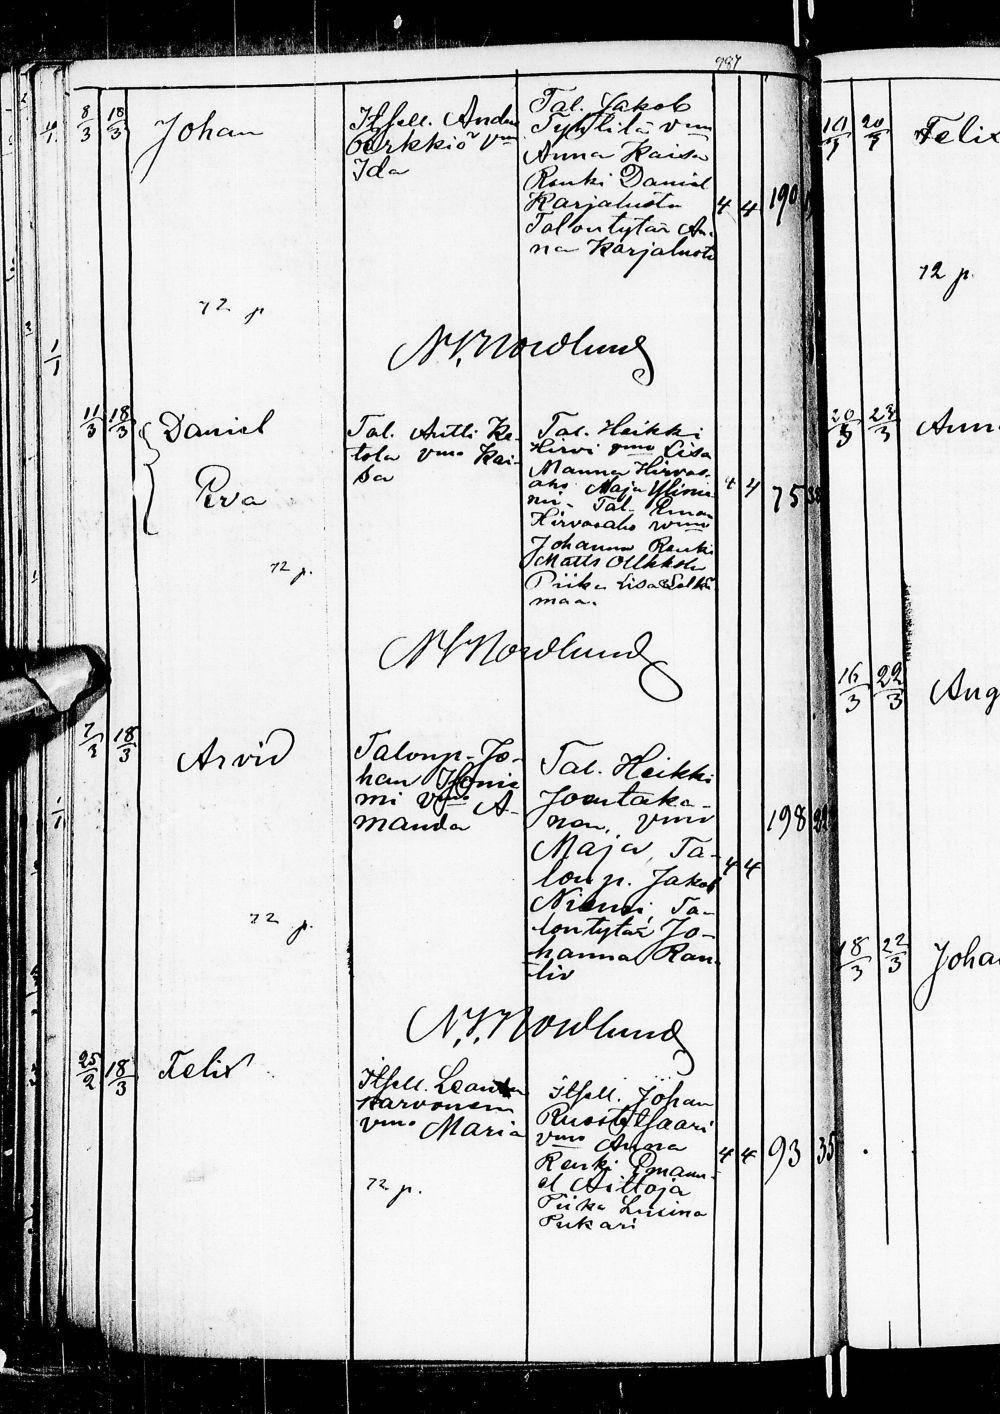 8/3 18/3 Johan
Itsell. Anders
Perkkiö vmo
Ida
Tal. Jakob
Tyhtilä vmo
Anna Kaisa
Renki Daniel
Karjaluoto
Talontytär An-
na Karjaluoto
4 4 190
72 p
N. J. Nordlund
11/3 18/3 Daniel
Eva
Tal. Antti Ke-
tola vmo Kai-
sa
Tal. Heikki
Hirvi vmo Lisa
Manna Hirvas-
aho Maja Yliniе-
mi. Tal. Eman
Hirvasaho vmo
Johanna Renki
Matts Ollkkola
Piika Lisa
maa.
4 4 75 38
72 p.
N. J. Nordlund
7/3 18/3 Arvid
Talonp. Jo-
han
mi vmo A-
manda
Tal. Heikki
Joentaka-
nen, vmo
Maja, Ta-
lonp. Jakob
Niemi, Ta-
lontytär Jo-
hanna Ran-
4 4 198
72 p.
N. J. Nordlund
25/2 18/3 Felix
Itsell. Leander
Karvonen
vmo Maria
Itsell. Johan
vmo Anna
Renki Emanu-
el Aittoja
Piika Lusina
Pukari
4 4 93 35
72 p.
20/3 Felix
72 p.
20/3 23/3 Anna
16/3 22/3 Aug
18/3 22/3 Joha